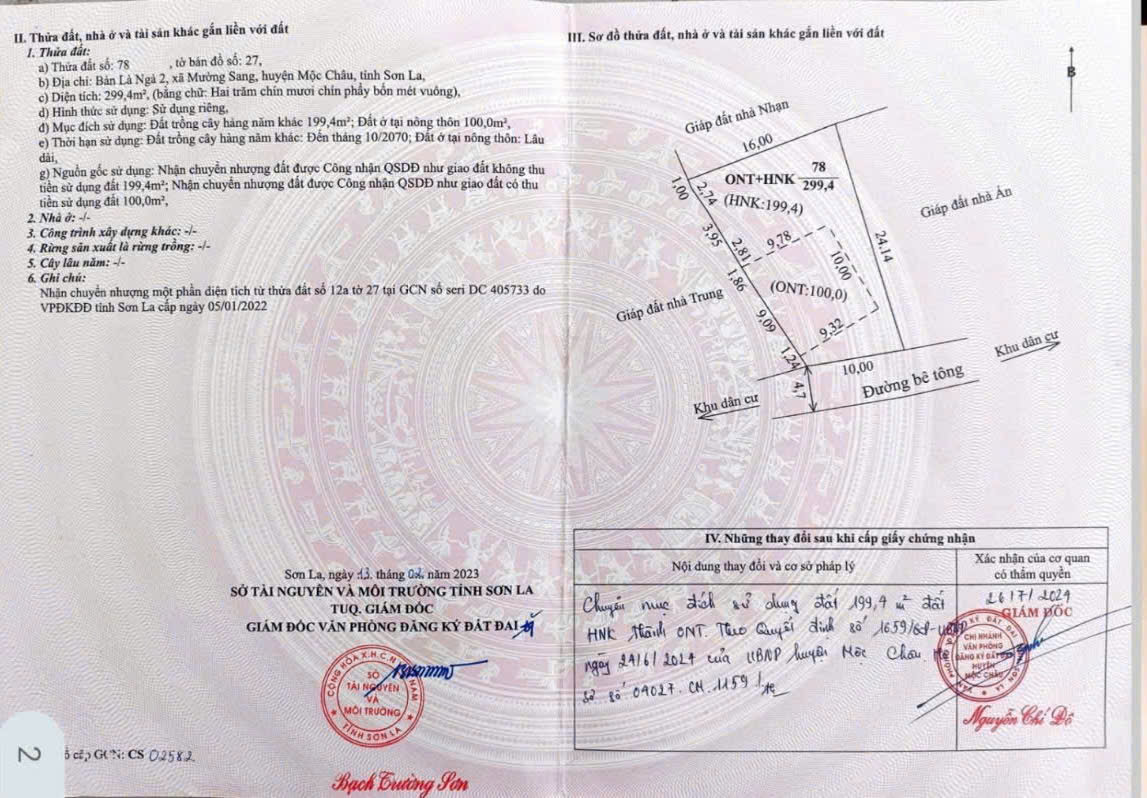 II. Thửa đất, nhà ở và tài sản khác gắn liền với đất
1. Thửa đất:
a) Thửa đất số: 78 , tờ bản đồ số: 27,
b) Địa chỉ: Bản Là Ngà 2, xã Mường Sang, huyện Mộc Châu, tỉnh Sơn La,
c) Diện tích: 299,4m², (bằng chữ: Hai trăm chín mươi chín phẩy bốn mét vuông),
d) Hình thức sử dụng: Sử dụng riêng,
đ) Mục đích sử dụng: Đất trồng cây hàng năm khác 199,4m²; Đất ở tại nông thôn 100,0m²,
e) Thời hạn sử dụng: Đất trồng cây hàng năm khác: Đến tháng 10/2070; Đất ở tại nông thôn: Lâu
dài,
g) Nguồn gốc sử dụng: Nhận chuyển nhượng đất được Công nhận QSDĐ như giao đất không thu
tiền sử dụng đất 199,4m²; Nhận chuyển nhượng đất được Công nhận QSDĐ như giao đất có thu
tiền sử dụng đất 100,0m²,
2. Nhà ở: -/-
3. Công trình xây dựng khác: -/-
4. Rừng sản xuất là rừng trồng: -/-
5. Cây lâu năm: -/-
6. Ghi chú:
Nhận chuyển nhượng một phần diện tích từ thửa đất số 12a tờ 27 tại GCN số seri DC 405733 do
VPĐKĐĐ tỉnh Sơn La cấp ngày 05/01/2022
Sơn La, ngày 13 tháng 02 năm 2023
SỞ TÀI NGUYÊN VÀ MÔI TRƯỜNG TỈNH SƠN LA
TUQ. GIÁM ĐỐC
GIÁM ĐỐC VĂN PHÒNG ĐĂNG KÝ ĐẤT ĐAI
CỘNG HÒA X.H.C.N VIỆT NAM
SỞ
TÀI NGUYÊN
VÀ
MÔI TRƯỜNG
TỈNH SƠN LA
Bạch Trường Sơn
GCN: CS 02582
2
III. Sơ đồ thửa đất, nhà ở và tài sản khác gắn liền với đất
B
Giáp đất nhà Nhạn
16,00
78
ONT+HNK
299,4
(HNK:199,4)
1,00
2,74
Giáp đất nhà Ấn
3,95
2,81
9,78
10,00
24,14
1,86
(ONT:100,0)
Giáp đất nhà Trung
9,09
9,32
1,24
10,00
Khu dân cư
4,7
Đường bê tông
Khu dân cư
IV. Những thay đổi sau khi cấp giấy chứng nhận
Nội dung thay đổi và cơ sở pháp lý
Xác nhận của cơ quan
có thẩm quyền
Chuyển mục đích sử dụng đất 199,4 m² đất
HNK thành ONT. Theo Quyết định số 1659/QĐ-UBND
ngày 24/6/2024 của UBND huyện Mộc Châu
số 04027.CN.1159
26/7/2024
GIÁM ĐỐC
CHI NHÁNH
VĂN PHÒNG
ĐĂNG KÝ ĐẤT ĐAI
HUYỆN
MỘC CHÂU
Nguyễn Chí Đô